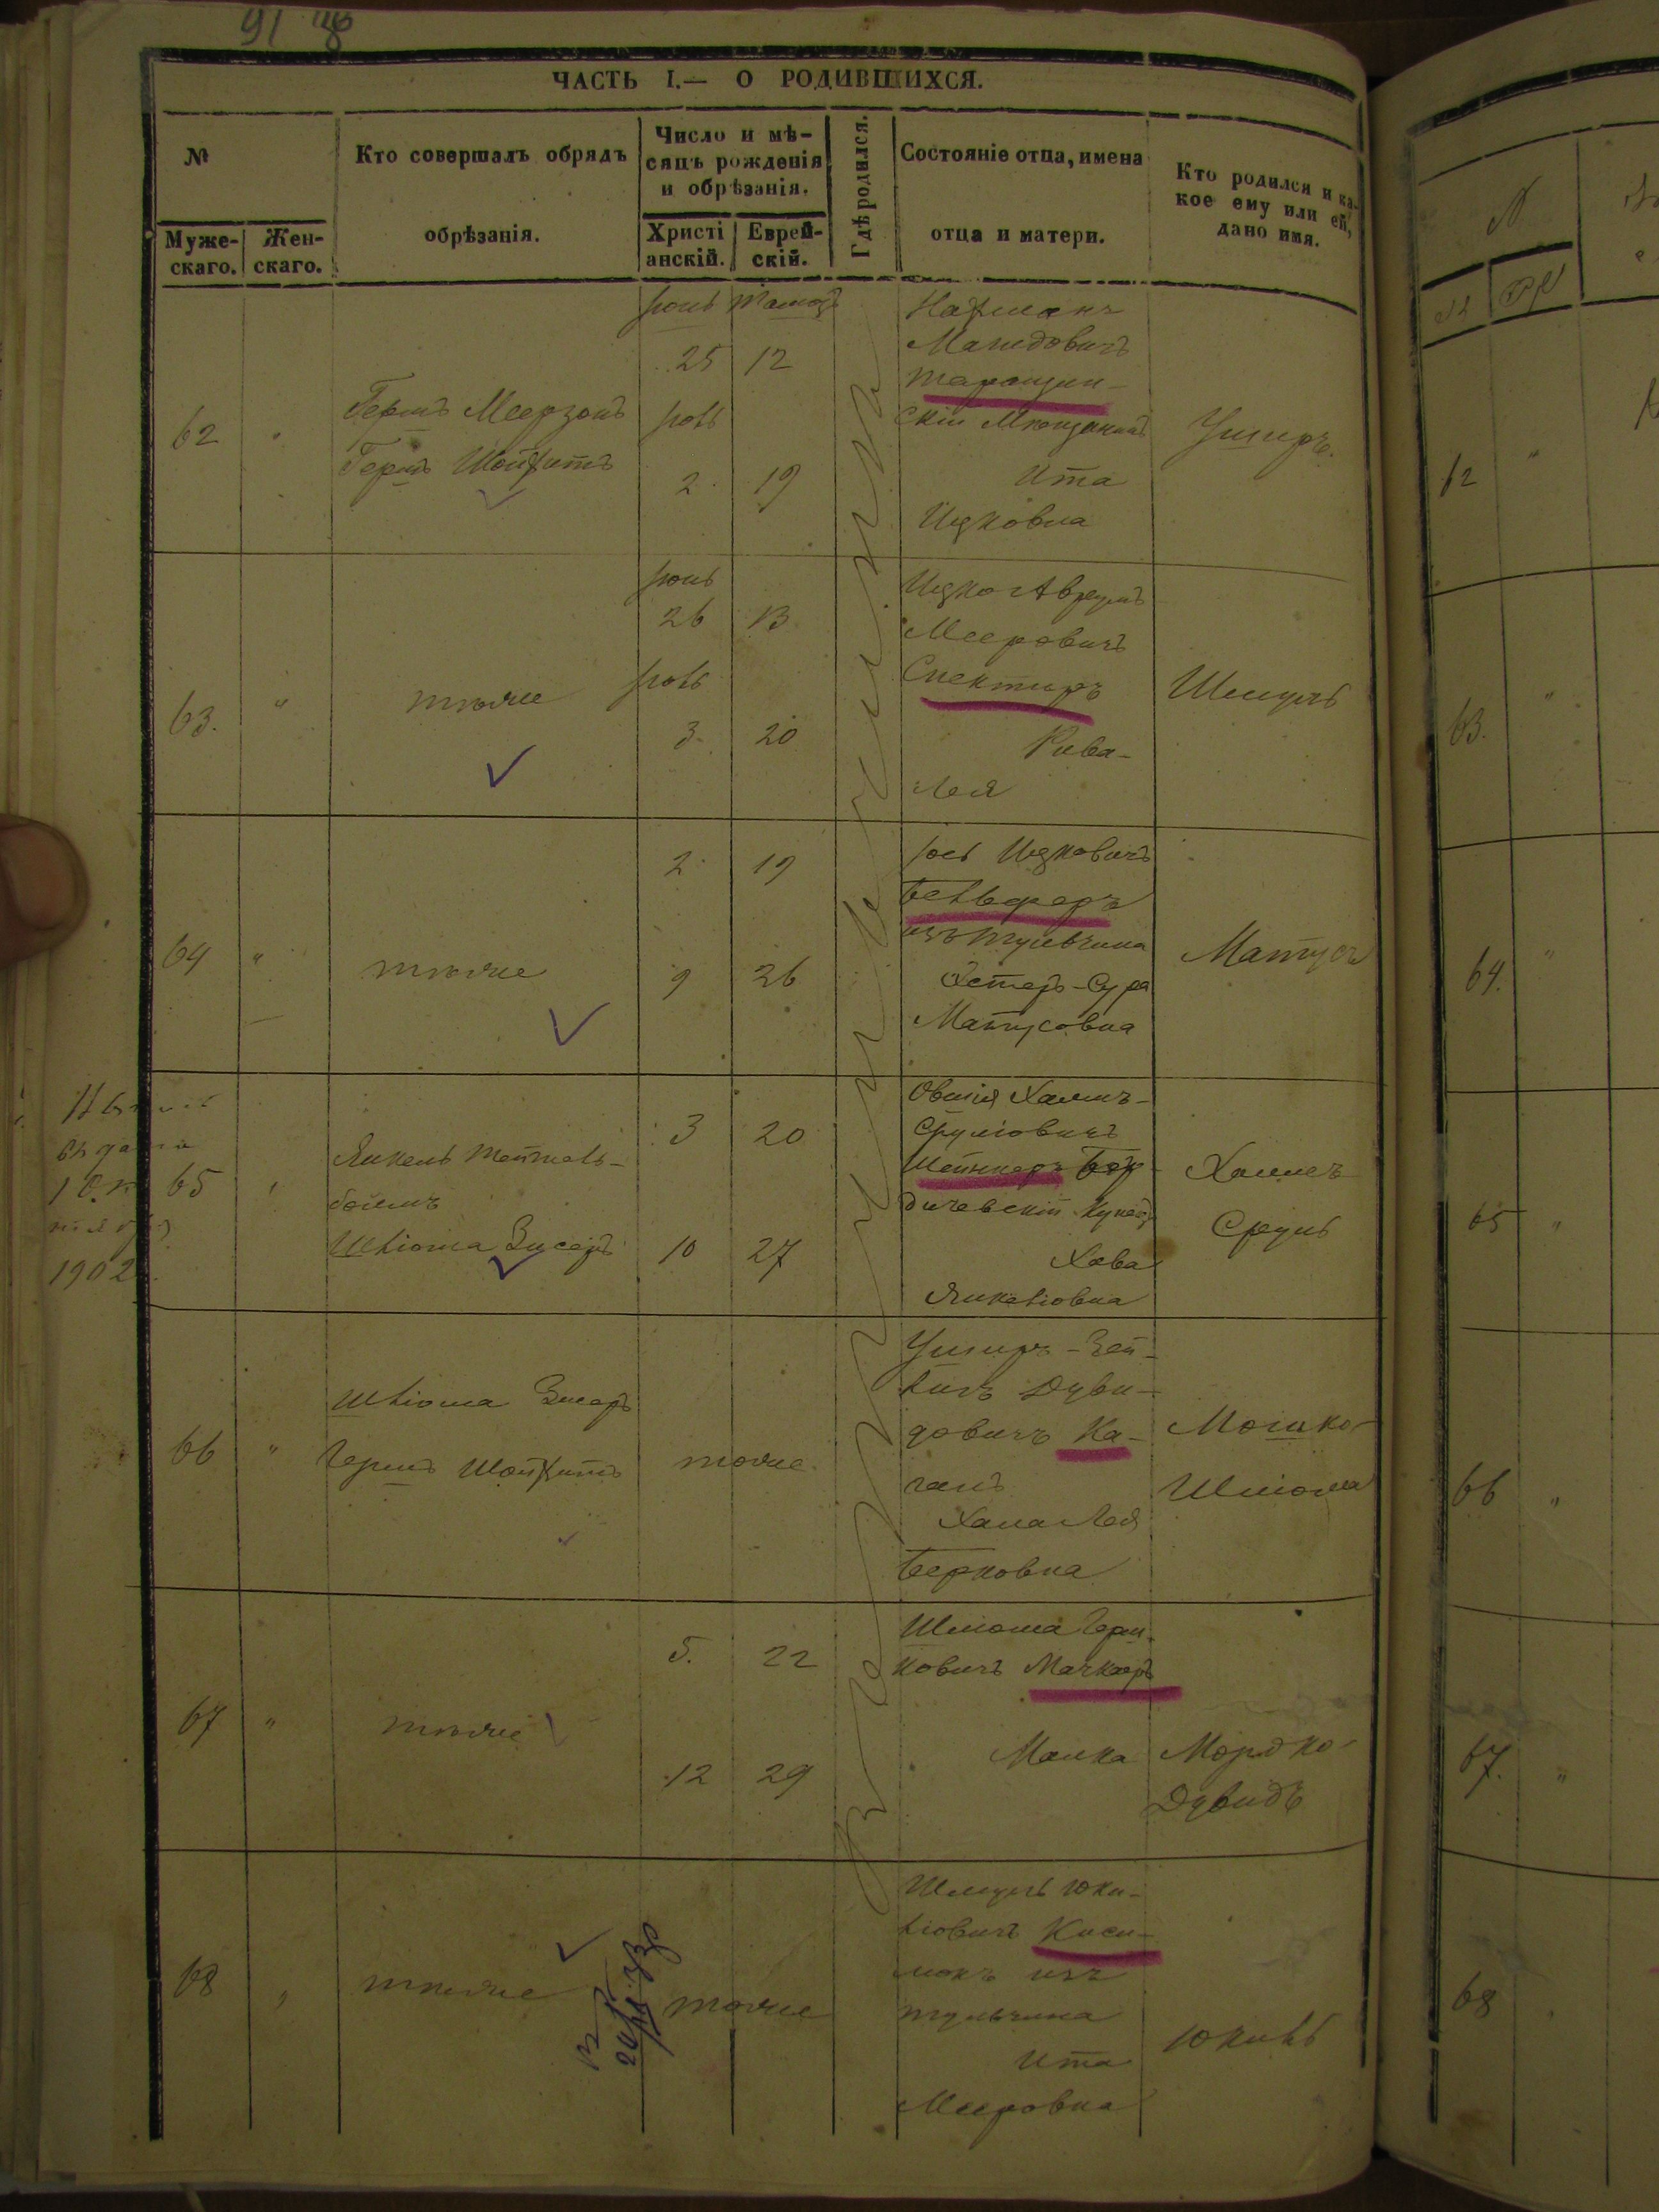 91
ЧАСТЬ I.— О РОДИВШИХСЯ.
№
Муже-
скаго.
Жен-
скаго.
Кто совершалъ обрядъ
обрѣзанія.
Число и мѣ-
сяцъ рожденія
и обрѣзанія.
Христі
анскій.
Еврей-
скій.
Гдѣ родился.
Состояніе отца, имена
отца и матери.
Кто родился и ка-
кое ему или ей,
дано имя.
62 "
Гершъ Меерзонъ
Гершъ Шойхитъ
Іюнь Тамозъ
25 12
Іюль
2 19
Нахманъ
Таращан-
скій Мѣщанинъ
Ита
Ицковна
Уширъ.
63. "
тѣже
Іюнь
26 13
Іюль
3 20
Ицко Авремъ
Мееровичъ
Спектиръ
Рива-
Лея
Шмуль
64 "
тѣже
2 19
9 26
Іось Ицковичъ
Бельферъ
изъ Тульчина
Эстеръ-Сура
Матусовна
Матусъ
65 "
Янкель Тейтель-
боймъ
Шліома Зисеръ
3 20
10 27
Овшія Хаимъ-
Сруліовичъ
Шейнкеръ Бер-
дичевскій Купецъ
Хава
Янкеліовна
Хаимъ
Сруль
1902
66 "
Шліома Зисеръ
Гершъ Шойхитъ
тоже
Уширъ-Зей-
лигъ Дуви-
довичъ Ка-
ганъ
Хана Лея
Берковна
Мошко-
Шліома
67 "
тѣже
5. 22
12 29
Шліома Герш-
ковичъ Мачкаръ
Малка
Мордко-
Дувидъ
68 "
тѣже
тоже
Шмуль Юки-
ліовичъ Киси-
изъ
Тульчина
Ита
Мееровна
Юкиль
62 "
63. "
64. "
65 "
66 "
67. "
68